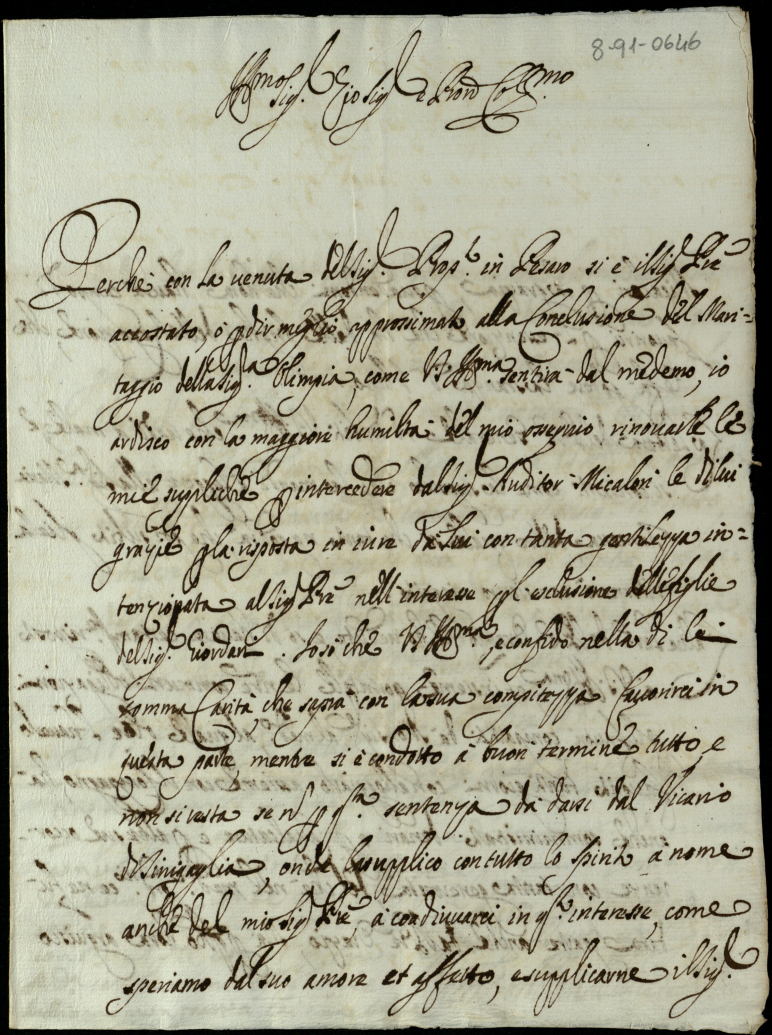 8-91-0646
Ill.mo Sig.r Zio Sig.r e Pron Col.mo
Perche con la venuta del Sig.r Prop.o in Pesaro si è il Sig.r Pre
accostato, ò p dir meglio approssimato alla Conclusione del Mari-
taggio della Sig.ra Olimpia, come V.S. Ill.ma sentirà dal medemo, io
ardisco con la maggiore humiltà del mio ossequio rinovarle le
mie suppliche p intercedere dal Sig.r Auditor Micalori le di lui
grazie p la risposta in iure da lui con tanta gentilezza in-
tenzionata al Sig.r Pre nell'interesse p l'esclusione delle figlie
del Sig.r Giordani. Io sò che V.S. Ill.ma, e confido nella di lei
somma Carità, che saprà con la sua compitezza favorirci in
questa parte, mentre si è condotto à buon termine tutto, e
non si resta se n p q.sta sentenza da darsi dal Vicario
di Sinigaglia, onde la supplico con tutto lo spirito à nome
anche del mio Sig.r Pre, à coadiuvarci in q.sto interesse, come
speriamo dal suo amore et affetto, e supplicarne il Sig.r